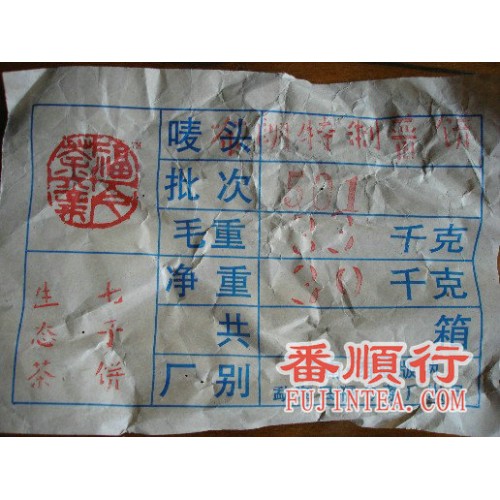 福今茶業
唛头 特制青饼
批次 501
毛重 33 千克
净重 30 千克
共 箱
厂别
七子饼
生态茶
番順行
FUJINTEA.COM